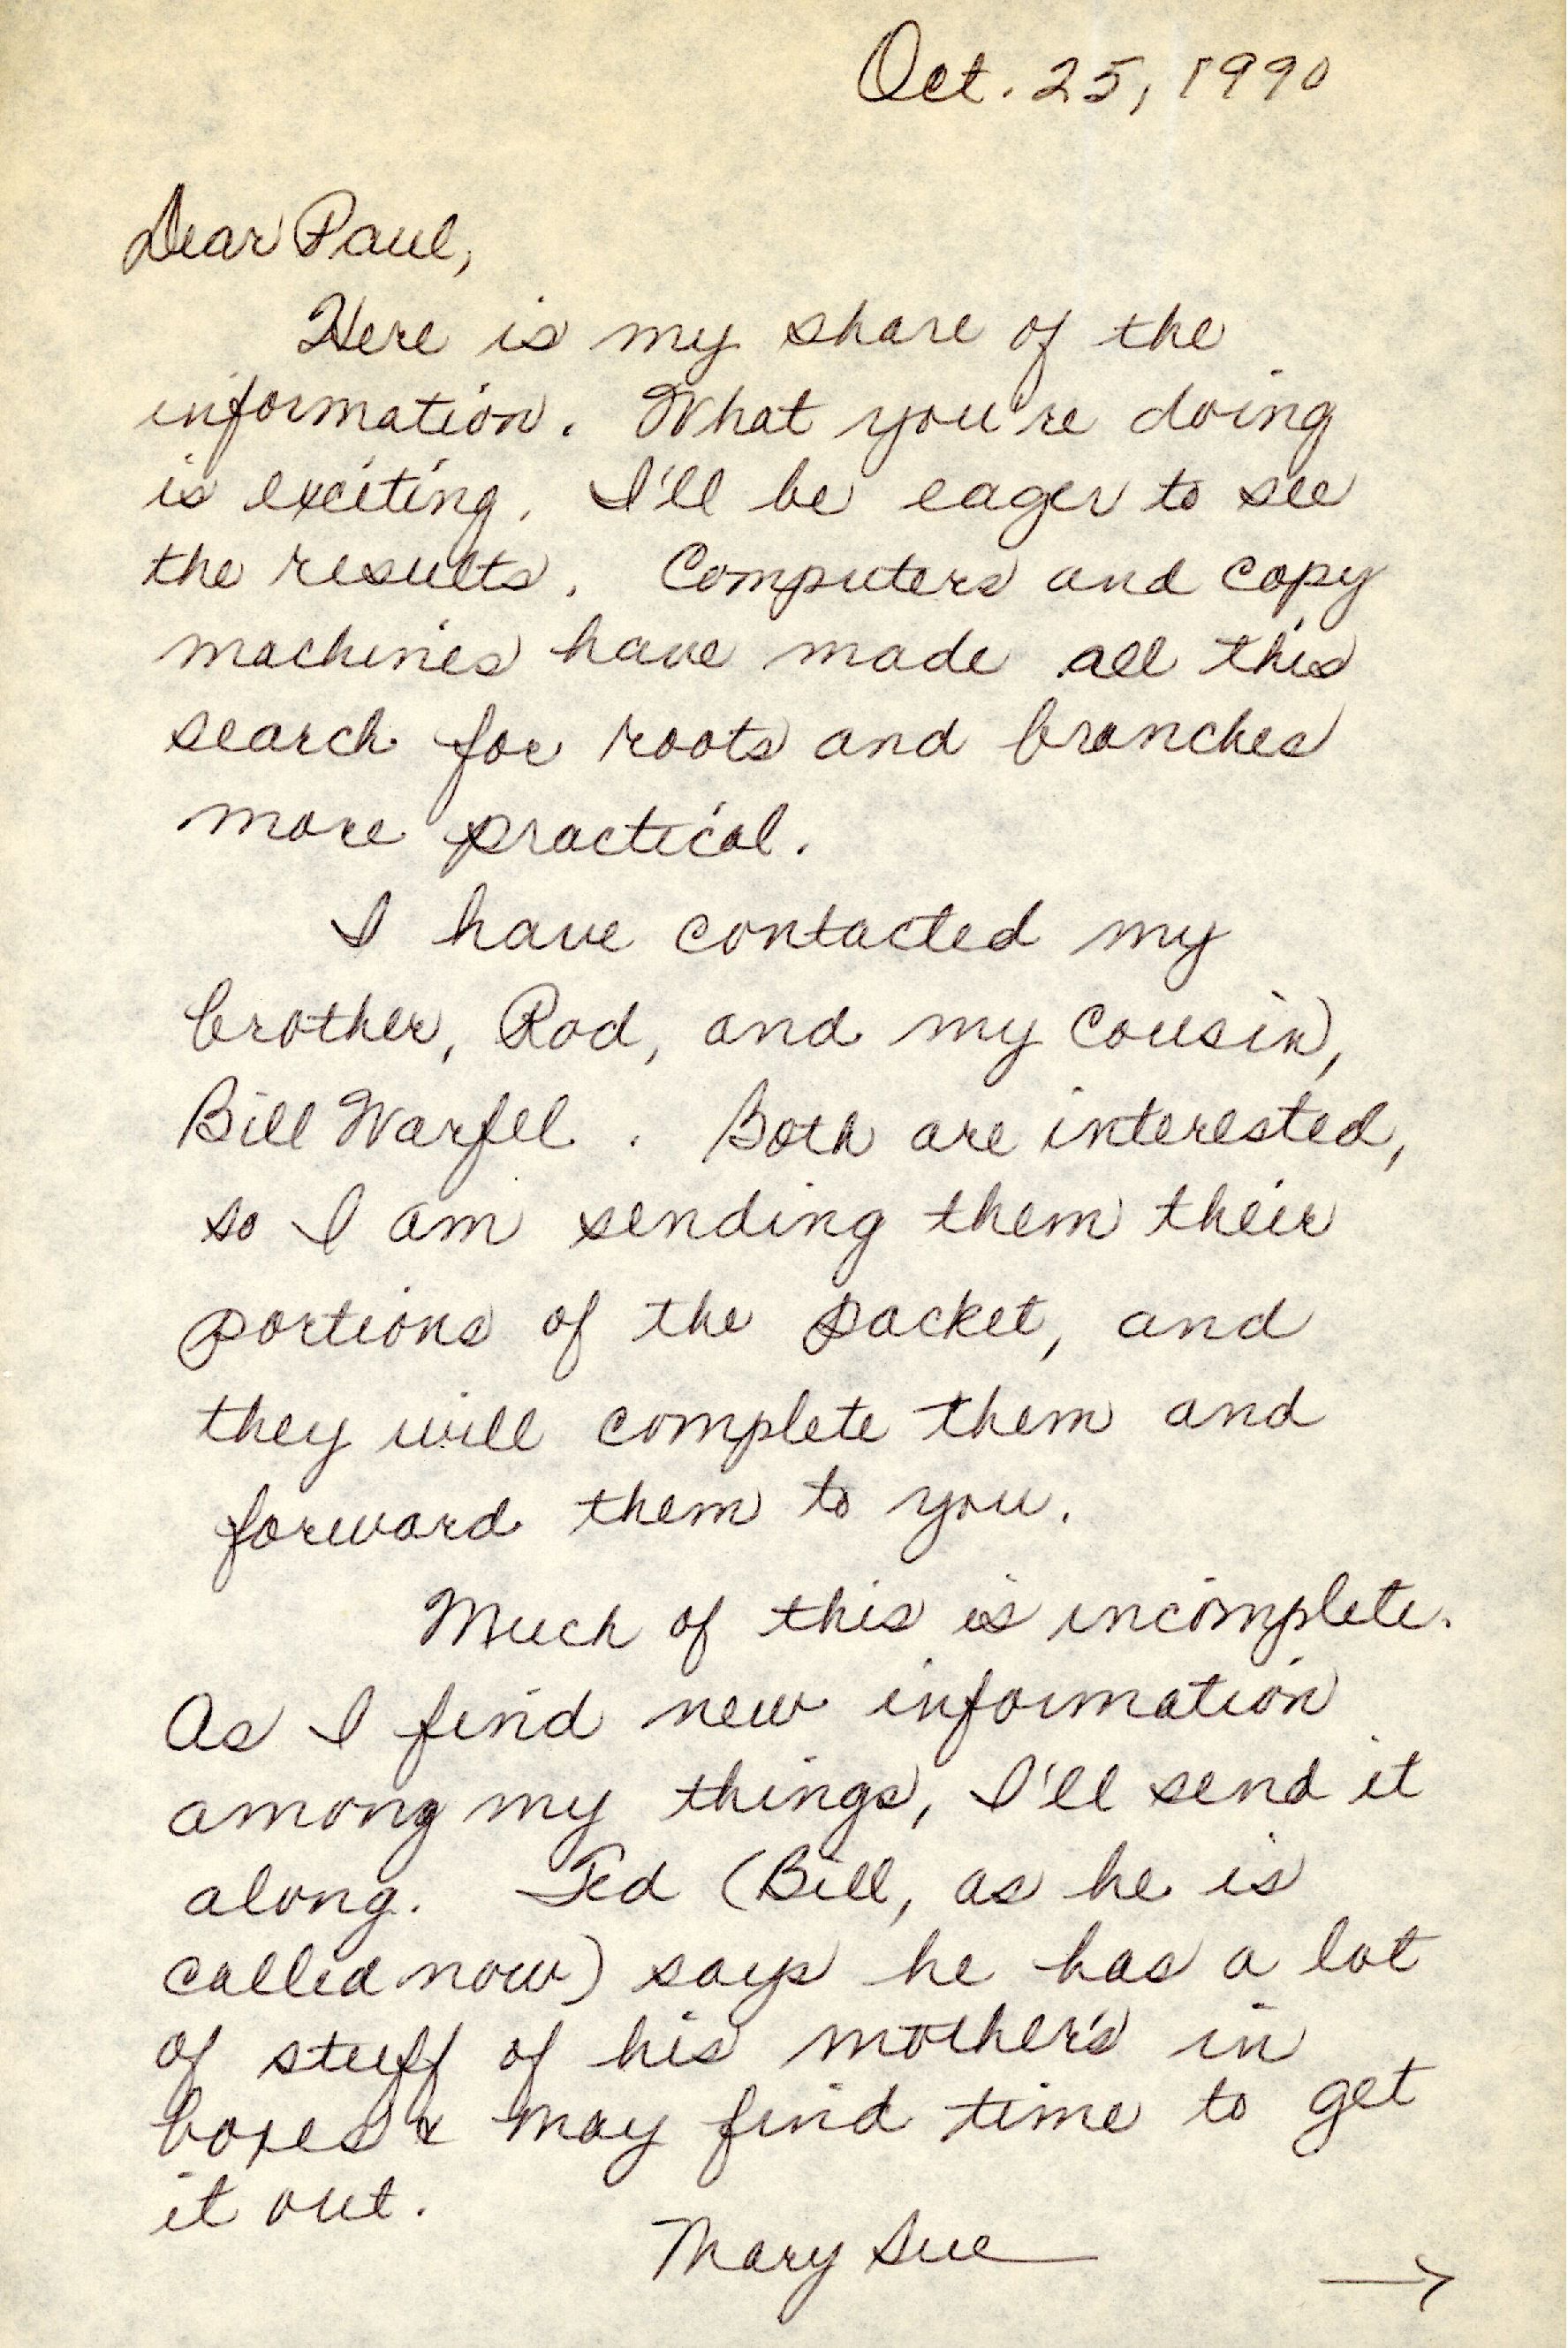 Oct. 25, 1990
Dear Paul,
Here is my share of the
information. What you're doing
is exciting. I'll be eager to see
the results. Computers and copy
machines have made all this
search for roots and branches
more practical.
I have contacted my
brother, Rod, and my cousin,
Bill Warfel. Both are interested,
so I am sending them their
portions of the packet, and
they will complete them and
forward them to you.
Much of this is incomplete.
As I find new information
among my things, I'll send it
along. Ted (Bill, as he is
called now) says he has a lot
of stuff of his mother's in
boxes & may find time to get
it out.
Mary Sue
→